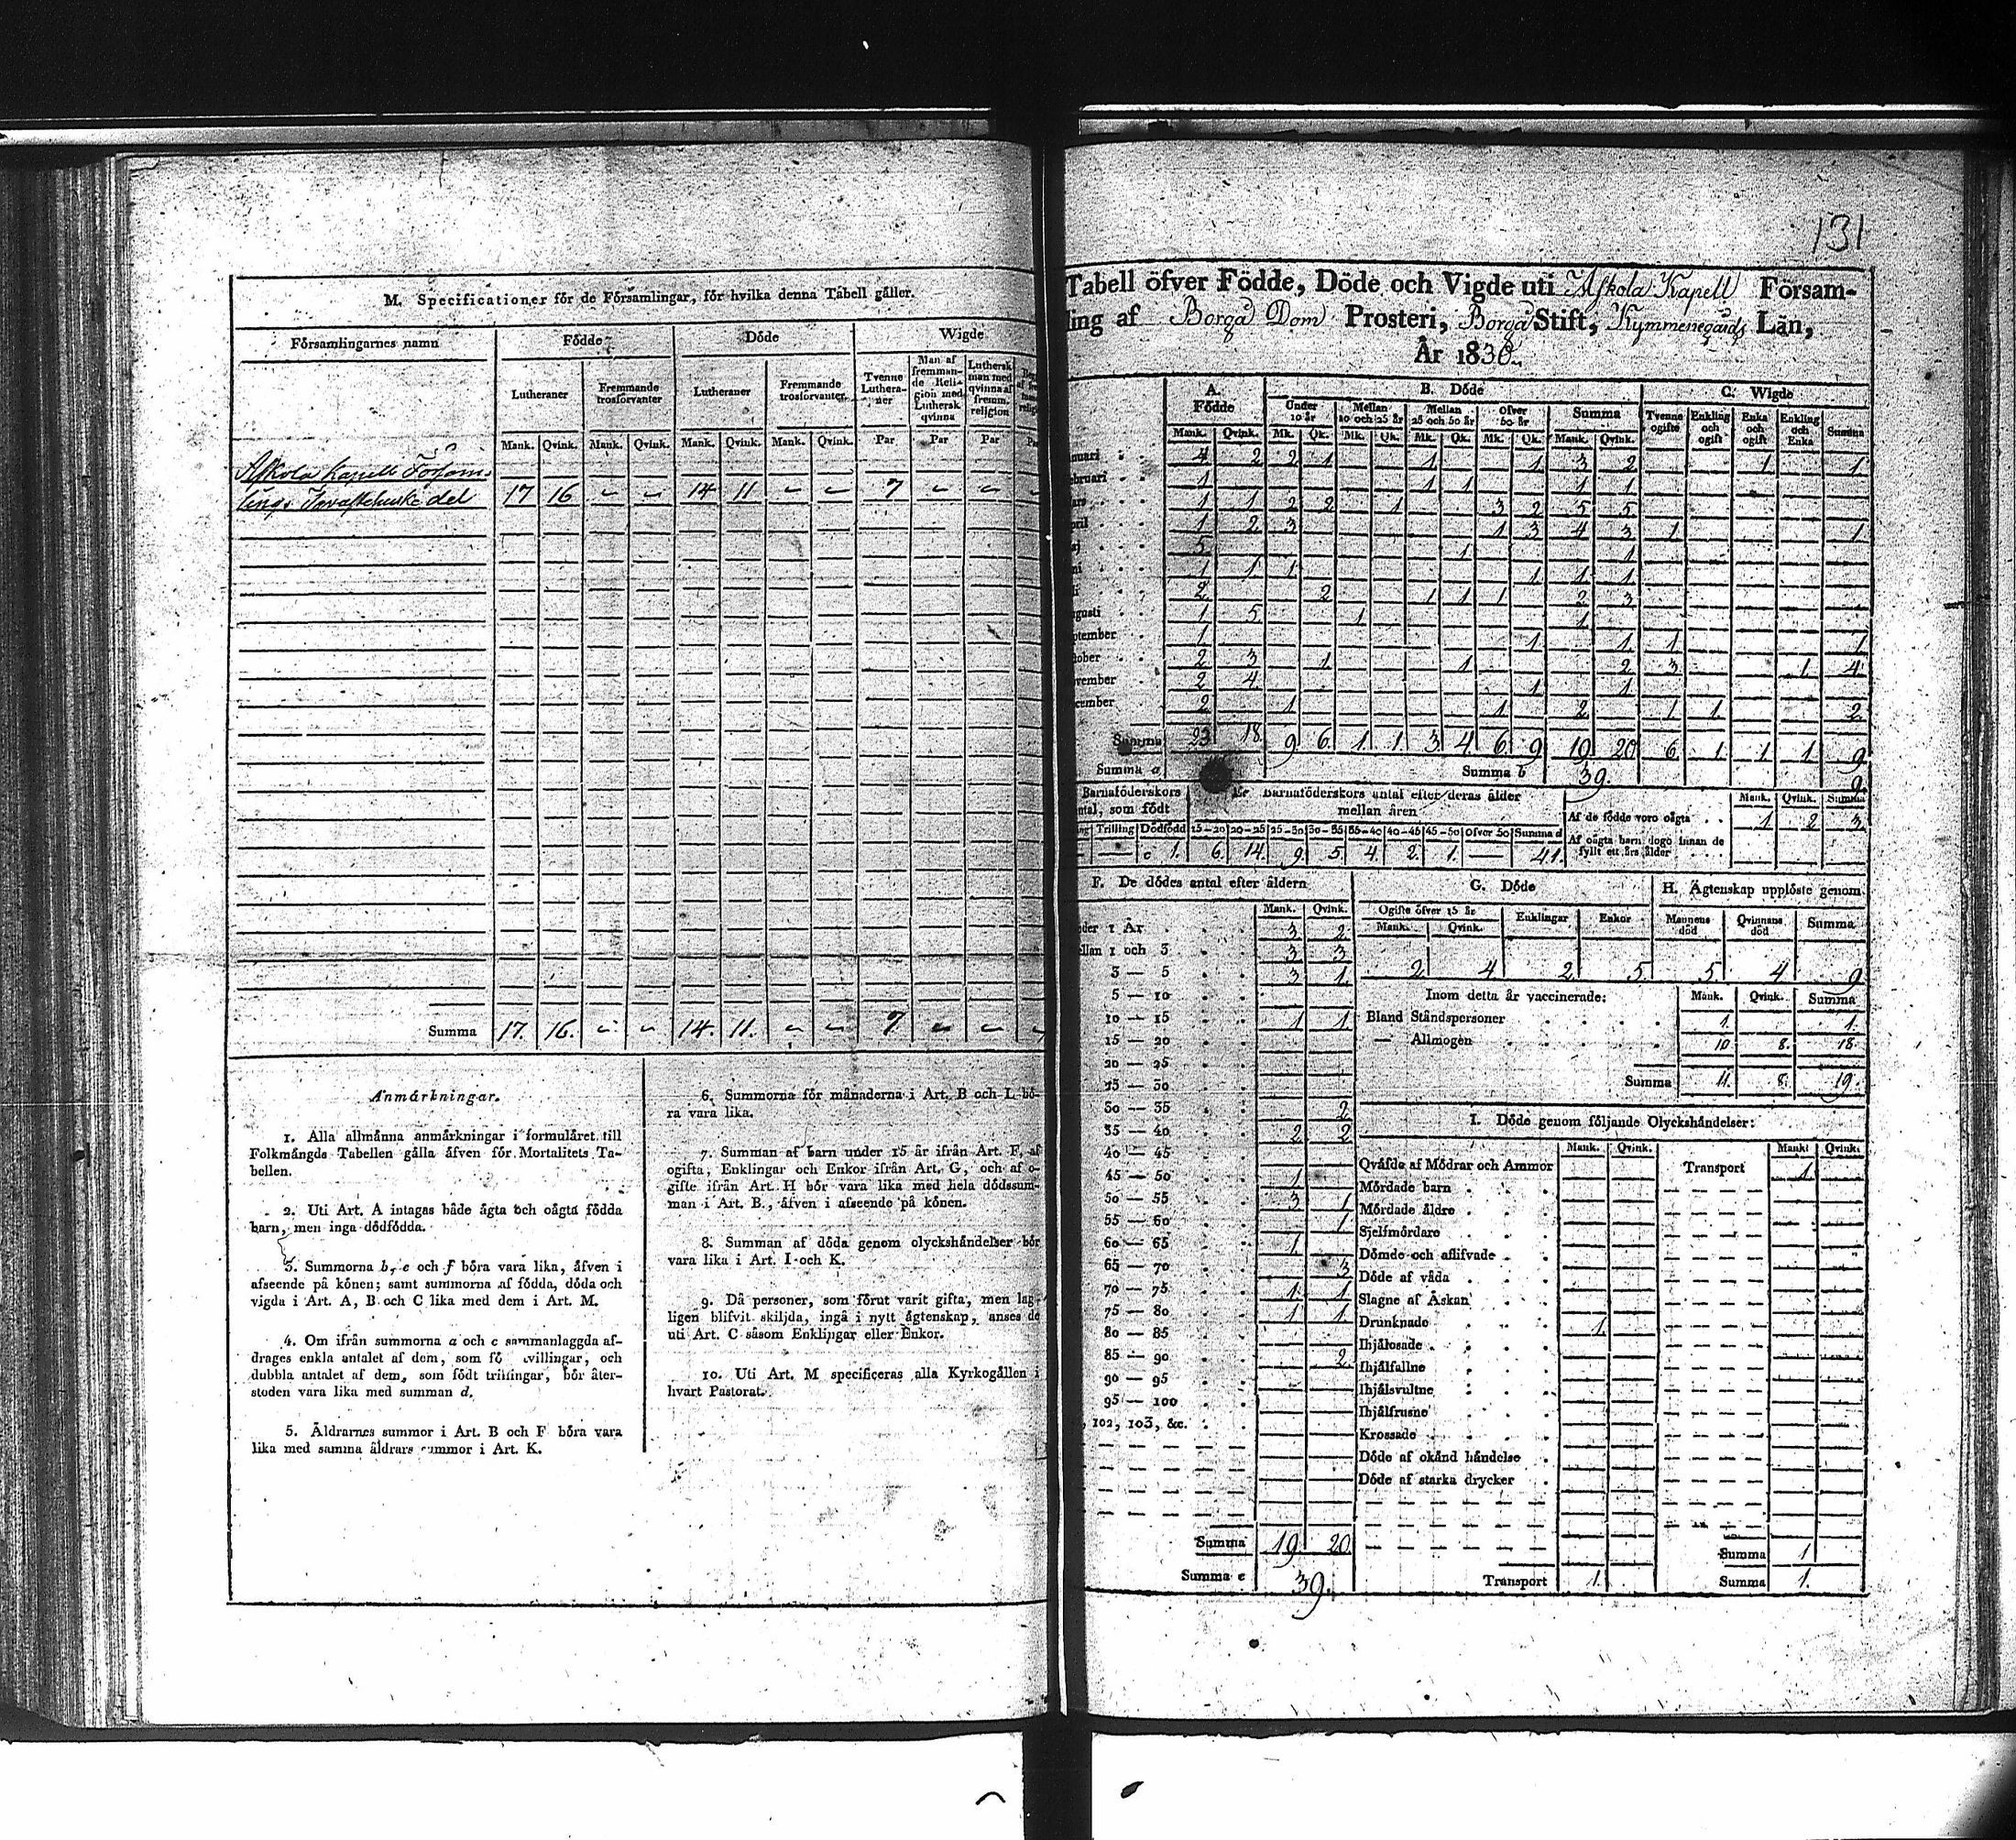 M. Specificationer för de Församlingar, för hvilka denna Tabell gäller.
Församlingarnes namn | Födde | Döde | Wigde
Lutheraner | Fremmande trosförvanter | Lutheraner | Fremmande trosförvanter | Tvenne Lutheraner | Man af fremmande Religion med Luthersk qvinna | Luthersk man med qvinna af fremm. religion
Mank. Qvink. Mank. Qvink. Mank. Qvink. Mank. Qvink. Par Par Par
Askola Kapell Försam-
lings Tavastehuske del 17 16 - - 14 11 - - 7 - -
Summa 17. 16. - - 14. 11. - - 7 - -
Anmärkningar.
1. Alla allmänna anmärkningar i formuläret till
Folkmängds Tabellen gälla äfven för Mortalitets Ta-
bellen.
2. Uti Art. A intagas både ägta och oägta födda
barn, men inga dödfödda.
3. Summorna b, e och f böra vara lika, äfven i
afseende på könen; samt summorna af födda, döda och
vigda i Art. A, B och C lika med dem i Art. M.
4. Om ifrån summorna a och c sammanlaggda af-
drages enkla antalet af dem, som fö tvillingar, och
dubbla antalet af dem, som födt trillingar, bör åter-
stoden vara lika med summan d.
5. Åldrarnes summor i Art. B och F böra vara
lika med samma åldrars summor i Art. K.
6. Summorna för månaderna i Art. B och L bö-
ra vara lika.
7. Summan af barn under 15 år ifrån Art. F, af
ogifta, Enklingar och Enkor ifrån Art. G, och af o-
gifte ifrån Art. H bör vara lika med hela dödssum-
man i Art. B., äfven i afseende på könen.
8. Summan af döda genom olyckshändelser bör
vara lika i Art. I och K.
9. Då personer, som förut varit gifta, men lag-
ligen blifvit skiljda, ingå i nytt ägtenskap, anses de
uti Art. C såsom Enklingar eller Enkor.
10. Uti Art. M specificeras alla Kyrkogällen i
hvart Pastorat.
131
Tabell öfver Födde, Döde och Vigde uti Askola Kapell Försam-
ling af Borgå Dom Prosteri, Borgå Stift, Kymmenegårds Län,
År 1830.
A. Födde | B. Döde | C. Wigde
Under 10 år | Mellan 10 och 25 år | Mellan 25 och 50 år | Öfver 50 år | Summa | Tvenne ogifte | Enkling och ogift | Enka och ogift | Enkling och Enka | Summa
Mank. Qvink. Mk. Qk. Mk. Qk. Mk. Qk. Mk. Qk. Mank. Qvink.
nuari 4 2 2 1 1 1 3 2 1 1
bruari 1 1 1 1 1
ars 1 1 2 2 1 3 2 5 5
pril 1 2 3 1 3 4 3 1 1
aj 5 1 1
ni 1 1 1 1 1 1
li 2 2 1 1 1 2 3
gusti 1 5 1 1
ptember 1 1 1 1 1
tober 2 3 1 1 2 3 1 4
vember 2 4 1 1
cember 2 1 1 2 1 1 2
Summa 23 18 9 6 1 1 3 4 6 9 19 20 6 1 1 1 9
Summa a Summa b 39. 9.
Barnaföderskors
ntal, som födt
Trilling Dödfödd
— 1.
Barnaföderskors antal efter deras ålder
mellan åren
15—20 20—25 25—30 30—35 35—40 40—45 45—50 öfver 50 Summa d
6. 14. 9. 5. 4. 2. 1. — 41.
Mank. Qvink. Summa
Af de födde voro oägta 1 2 3
Af oägta barn dogo innan de
fyllt ett års ålder
F. De dödes antal efter åldern
Mank. Qvink.
der 1 År 3 2
ellan 1 och 3 3 3
3 — 5 3 1
5 — 10
10 — 15 1 1
15 — 20
20 — 25
25 — 30
30 — 35 2
35 — 40 2 2
40 — 45
45 — 50 1
50 — 55 3 1
55 — 60 1
60 — 65 1
65 — 70 3
70 — 75 1 1
75 — 80 1 1
80 — 85
85 — 90 2
90 — 95
95 — 100
102, 103, &c.
Summa 19 20
Summa e 39.
G. Döde
Ogifte öfver 15 år | Enklingar | Enkor
Mank. Qvink.
2 4 2 5
H. Ägtenskap upplöste genom
Mannens död | Qvinnans död | Summa
5 4 9
Inom detta år vaccinerade: Mank. Qvink. Summa
Bland Ståndspersoner 1. 1.
— Allmogen 10 8. 18
Summa 11. 8. 19.
I. Döde genom följande Olyckshändelser:
Mank. Qvink. Mank. Qvink.
Qväfde af Mödrar och Ammor Transport 1
Mördade barn
Mördade äldre
Sjelfmördare
Dömde och aflifvade
Döde af våda
Slagne af Åskan
Drunknade 1.
Ihjälosade
Ihjälfallne
Ihjälsvultne
Ihjälfrusne
Krossade
Döde af okänd händelse
Döde af starka drycker
Summa 1
Transport 1. Summa 1.